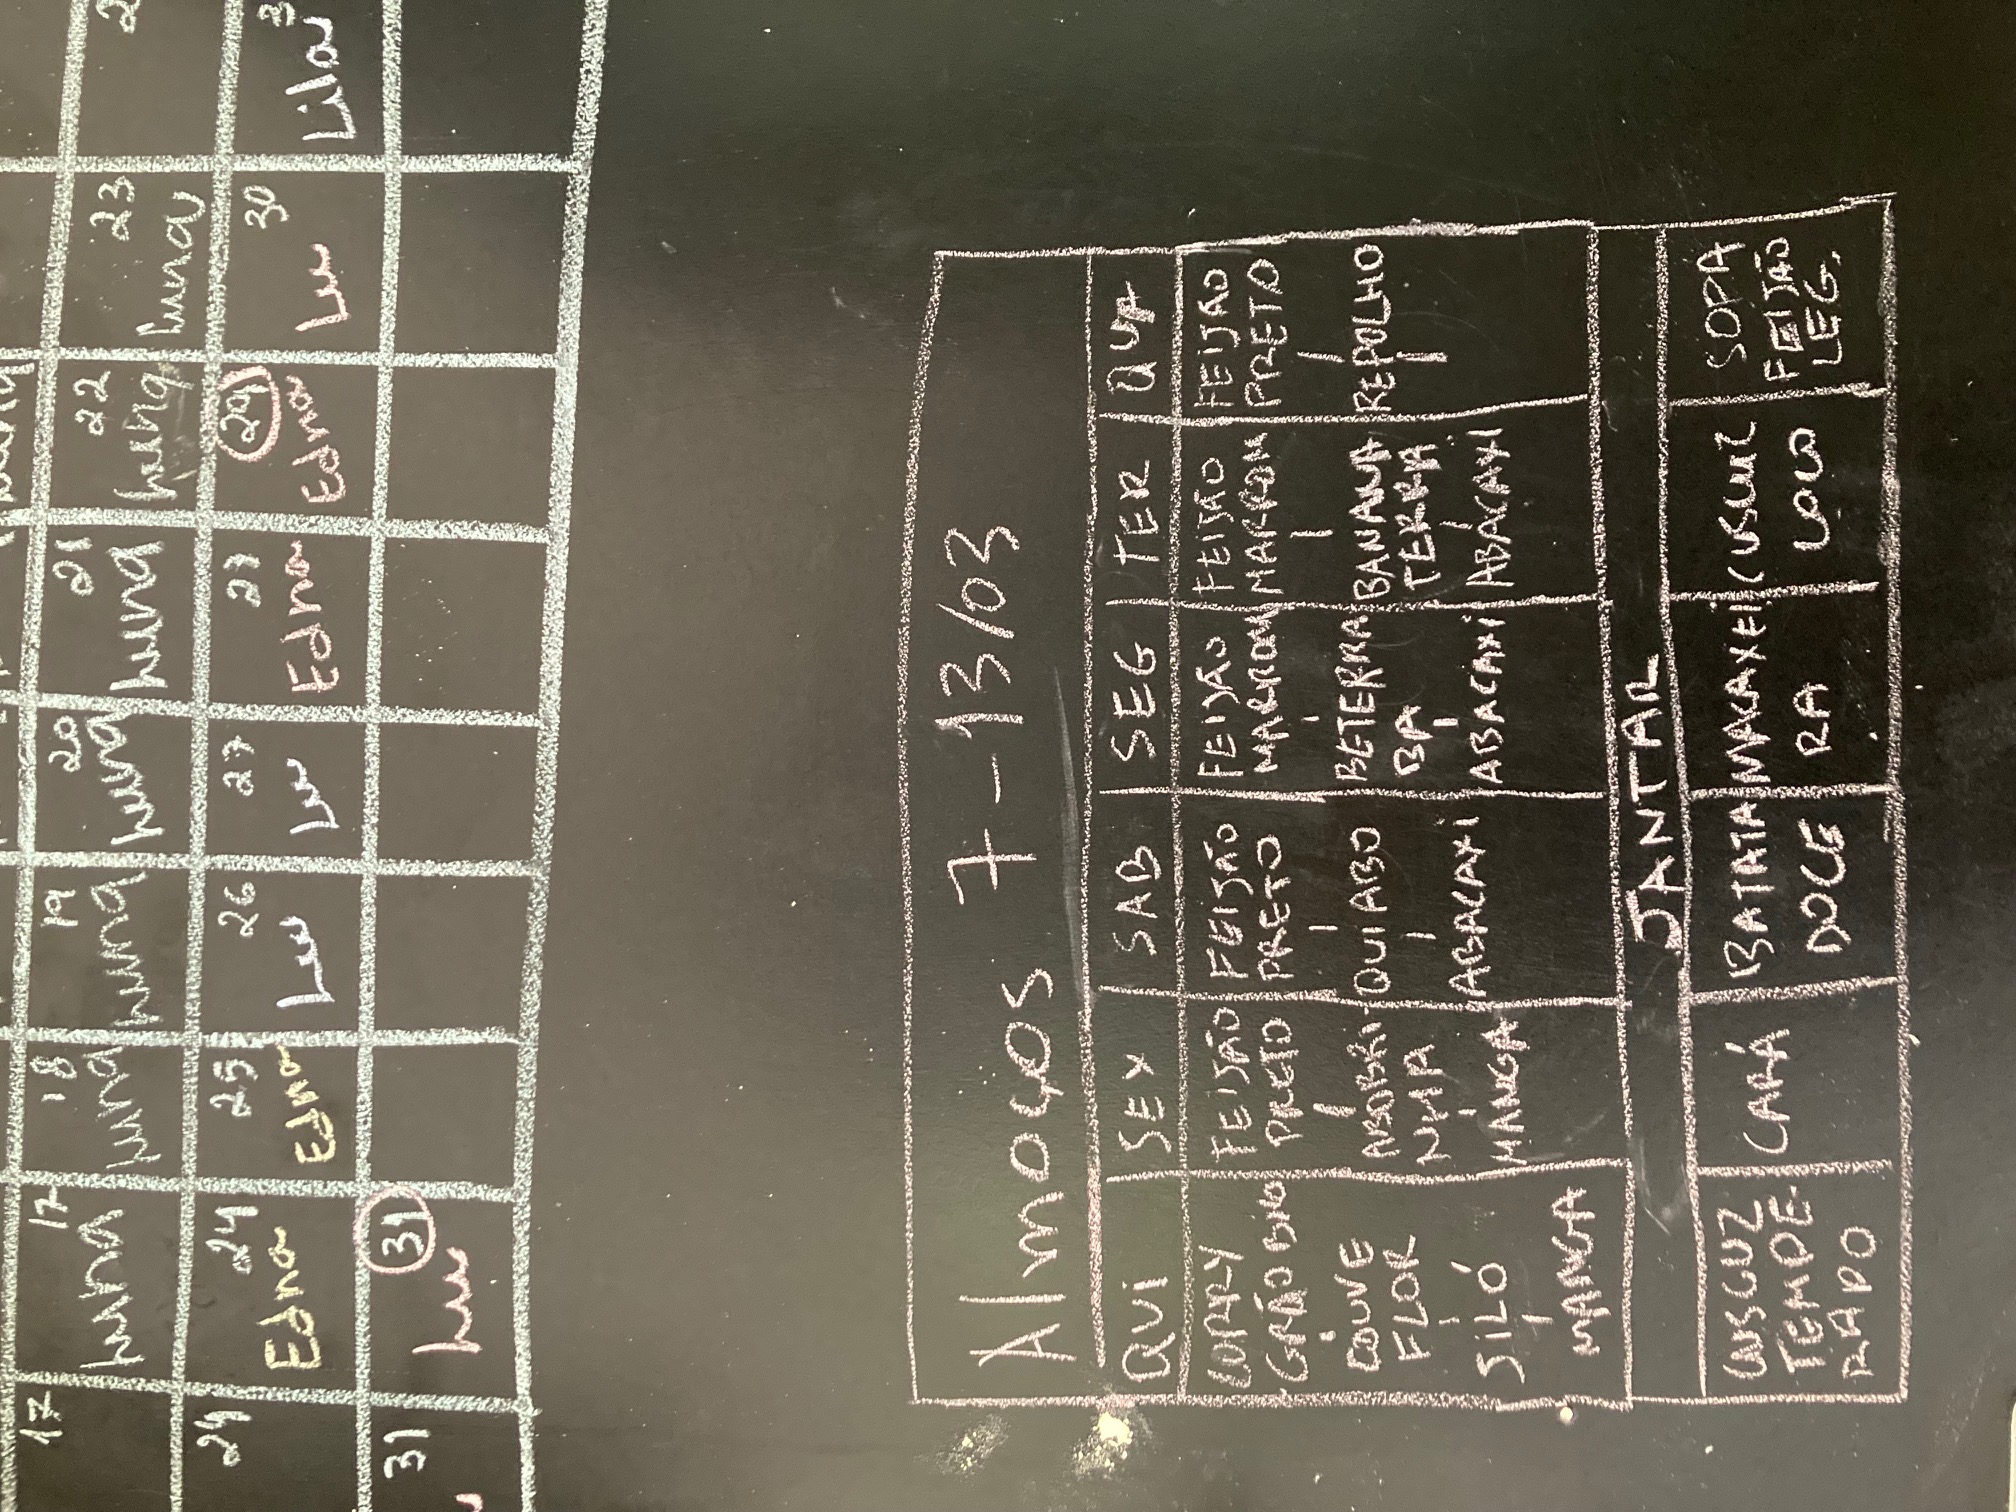 17 17 18 19 20 21 22 23
Luna Luna Luna Luna Luna Luna Luna
24 24 25 26 27 27 29 30
Edna Edna Lu Lu Edna Edna Lu Lilou
31 31
Lu
Almoços 7-13/03
QUI SEX SAB SEG TER QUA
CURRY FEIJÃO FEIJÃO FEIJÃO FEIJÃO FEIJÃO
GRÃO BICO PRETO PRETO MARROM MARROM PRETO
COUVE ABOBRI- QUIABO BETERRA BANANA REPOLHO
FLOR NHA BA TERRA
JILÓ MANGA ABACAXI ABACAXI ABACAXI
MANGA
JANTAR
CUSCUZ CARÁ BATATA MAKAXEI CUSCUZ SOPA
TEMPE- DOCE RA FEIJÃO
RADO LEG.